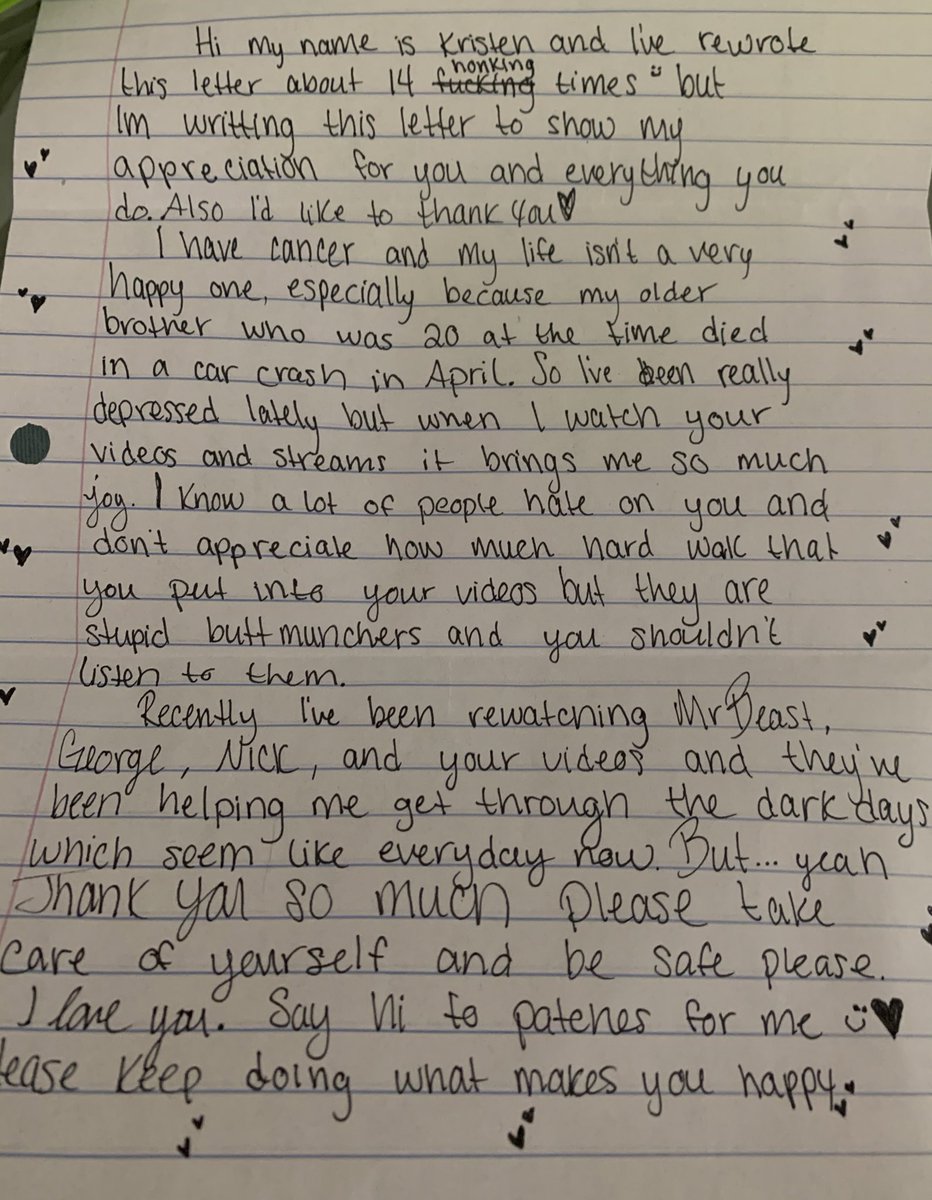 Hi my name is Kristen and I've rewrote
this letter about 14 fucking honking times but
Im writting this letter to show my
appreciation for you and everything you
do. Also I'd like to thank you
I have cancer and my life isn't a very
happy one, especially because my older
brother who was 20 at the time died
in a car crash in April. So I've been really
depressed lately but when I watch your
videos and streams it brings me so much
joy. I know a lot of people hate on you and
don't appreciate how much hard walk that
you put into your videos but they are
stupid buttmunchers and you shouldn't
listen to them.
Recently I've been rewatching MrBeast,
George, Nick, and your videos and they've
been helping me get through the dark days
which seem like everyday now. But... yeah
Thank yal so much please take
care of yourself and be safe please.
I love you. Say hi to patches for me
lease keep doing what makes you happy